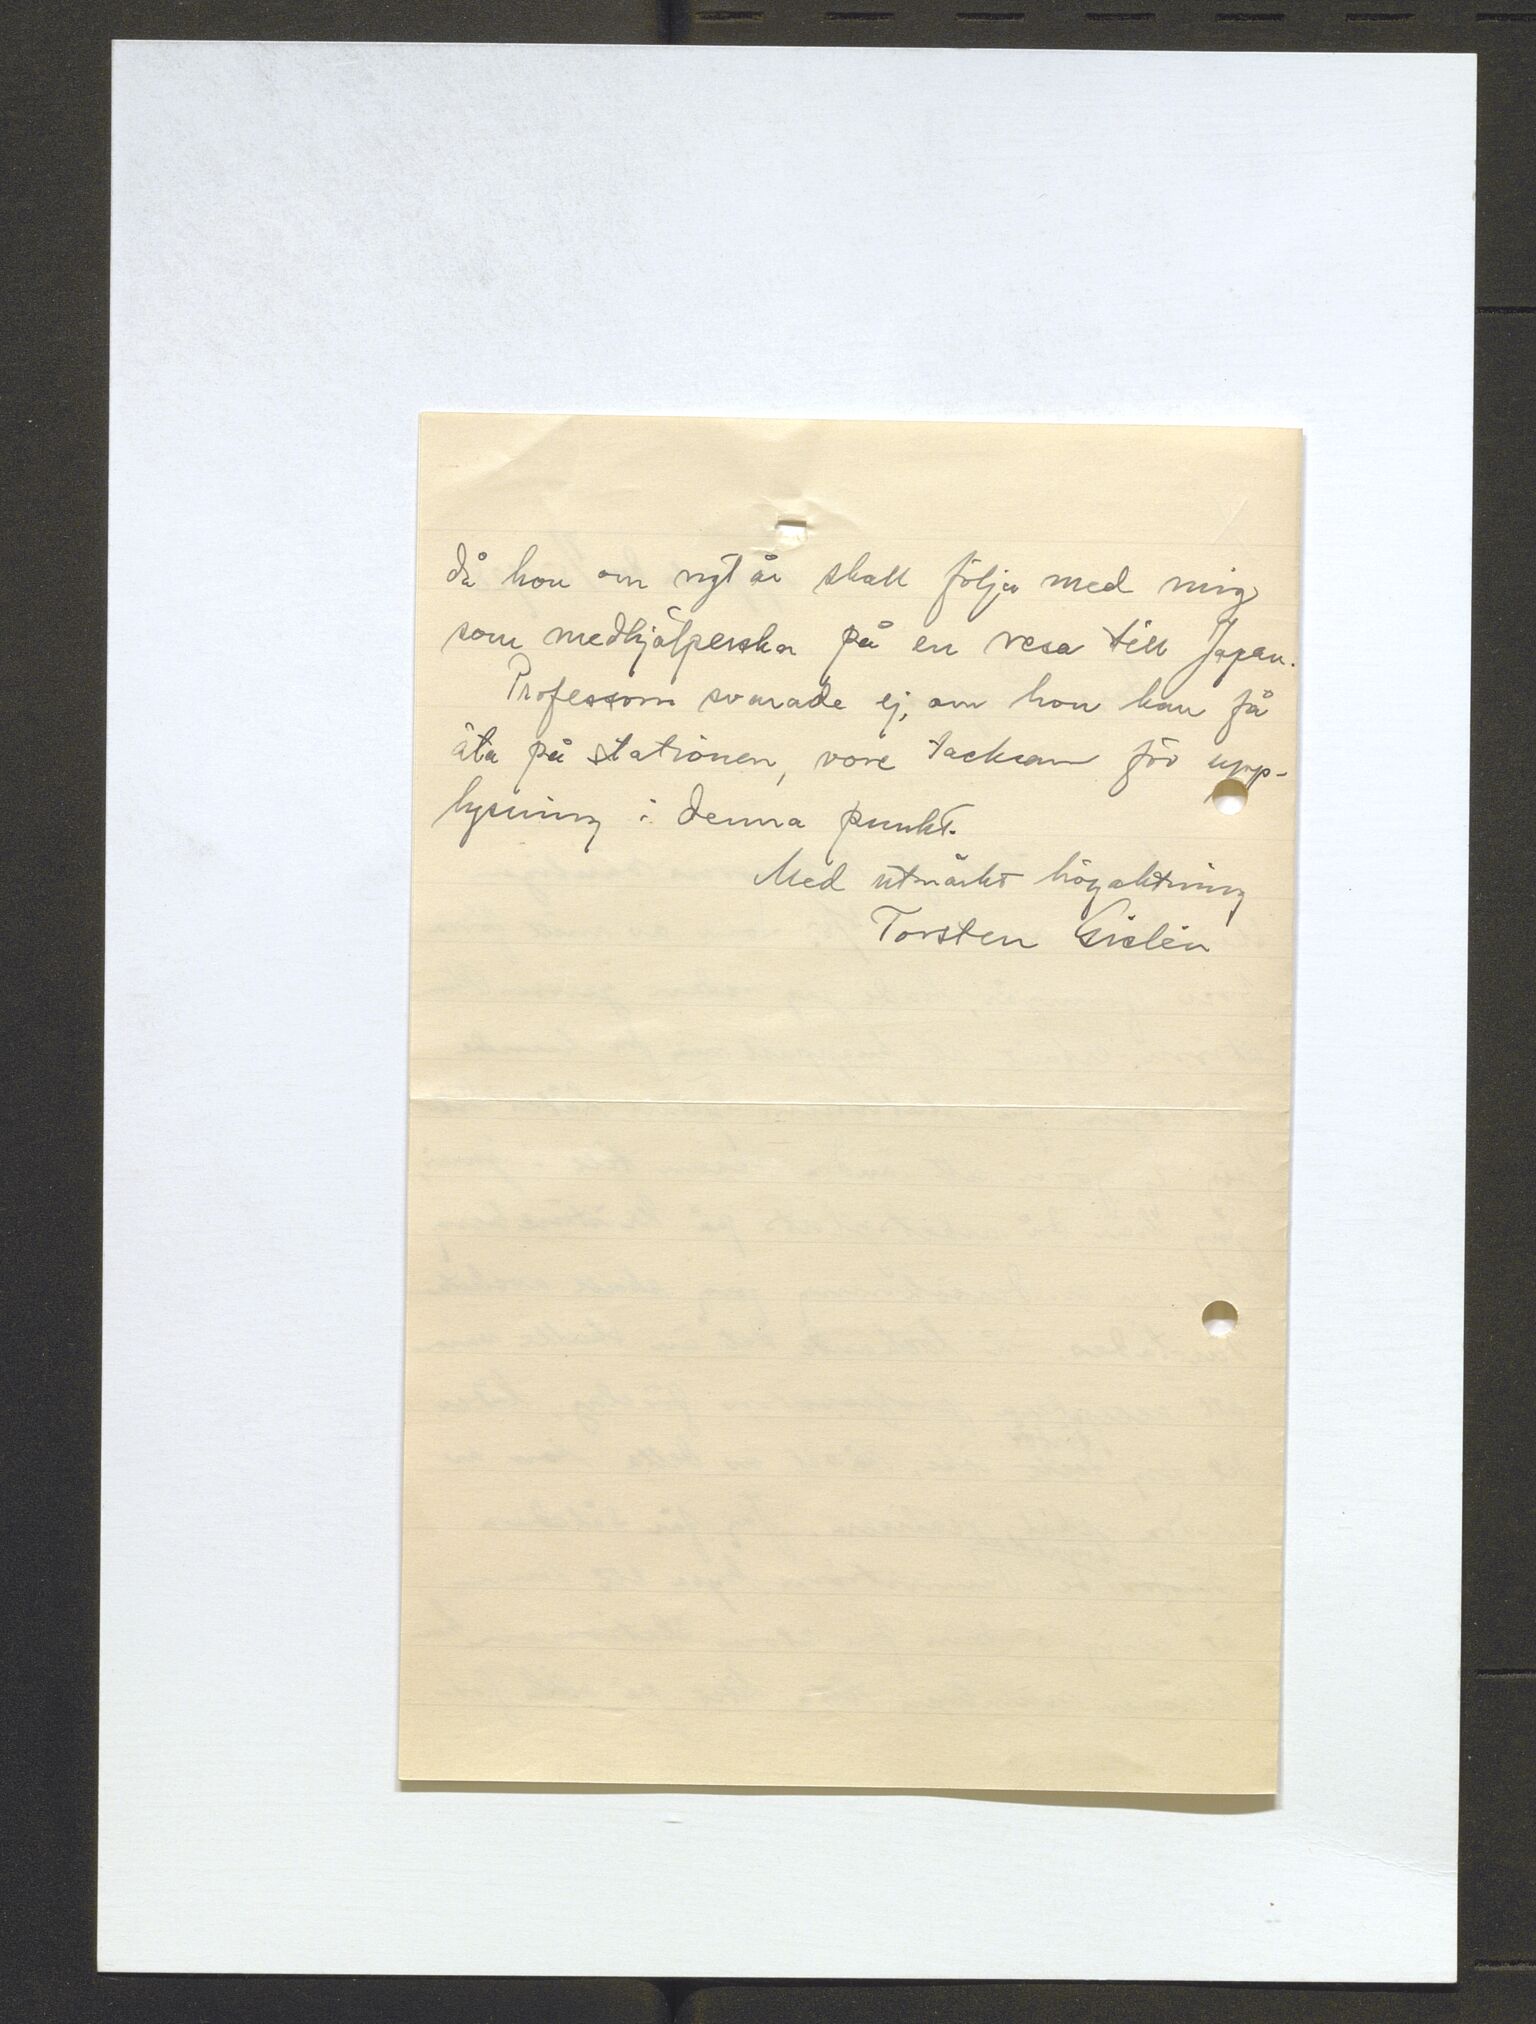 då hon om nytår skall följa med mig
som medhjälperska på en resa till Japan.
Professorn svarade ej, om hon kan få
äta på stationen, vore tacksam för upp-
lysning i denna punkt.
Med utmärkt högaktning
Torsten Gislén